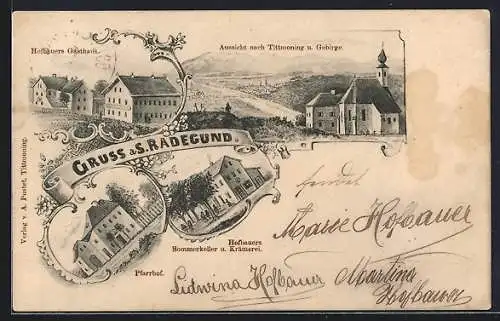 Hofbauers Gasthaus.
Aussicht nach Tittmoning u. Gebirge.
GRUSS a. S. RADEGUND
Verlag v. A. Pustet, Tittmoning.
Pfarrhof.
Hofbauers
Sommerkeller u. Krämerei.
sendet
Marie Hofbauer
Ludwina Hofbauer
Martina
Hofbauer